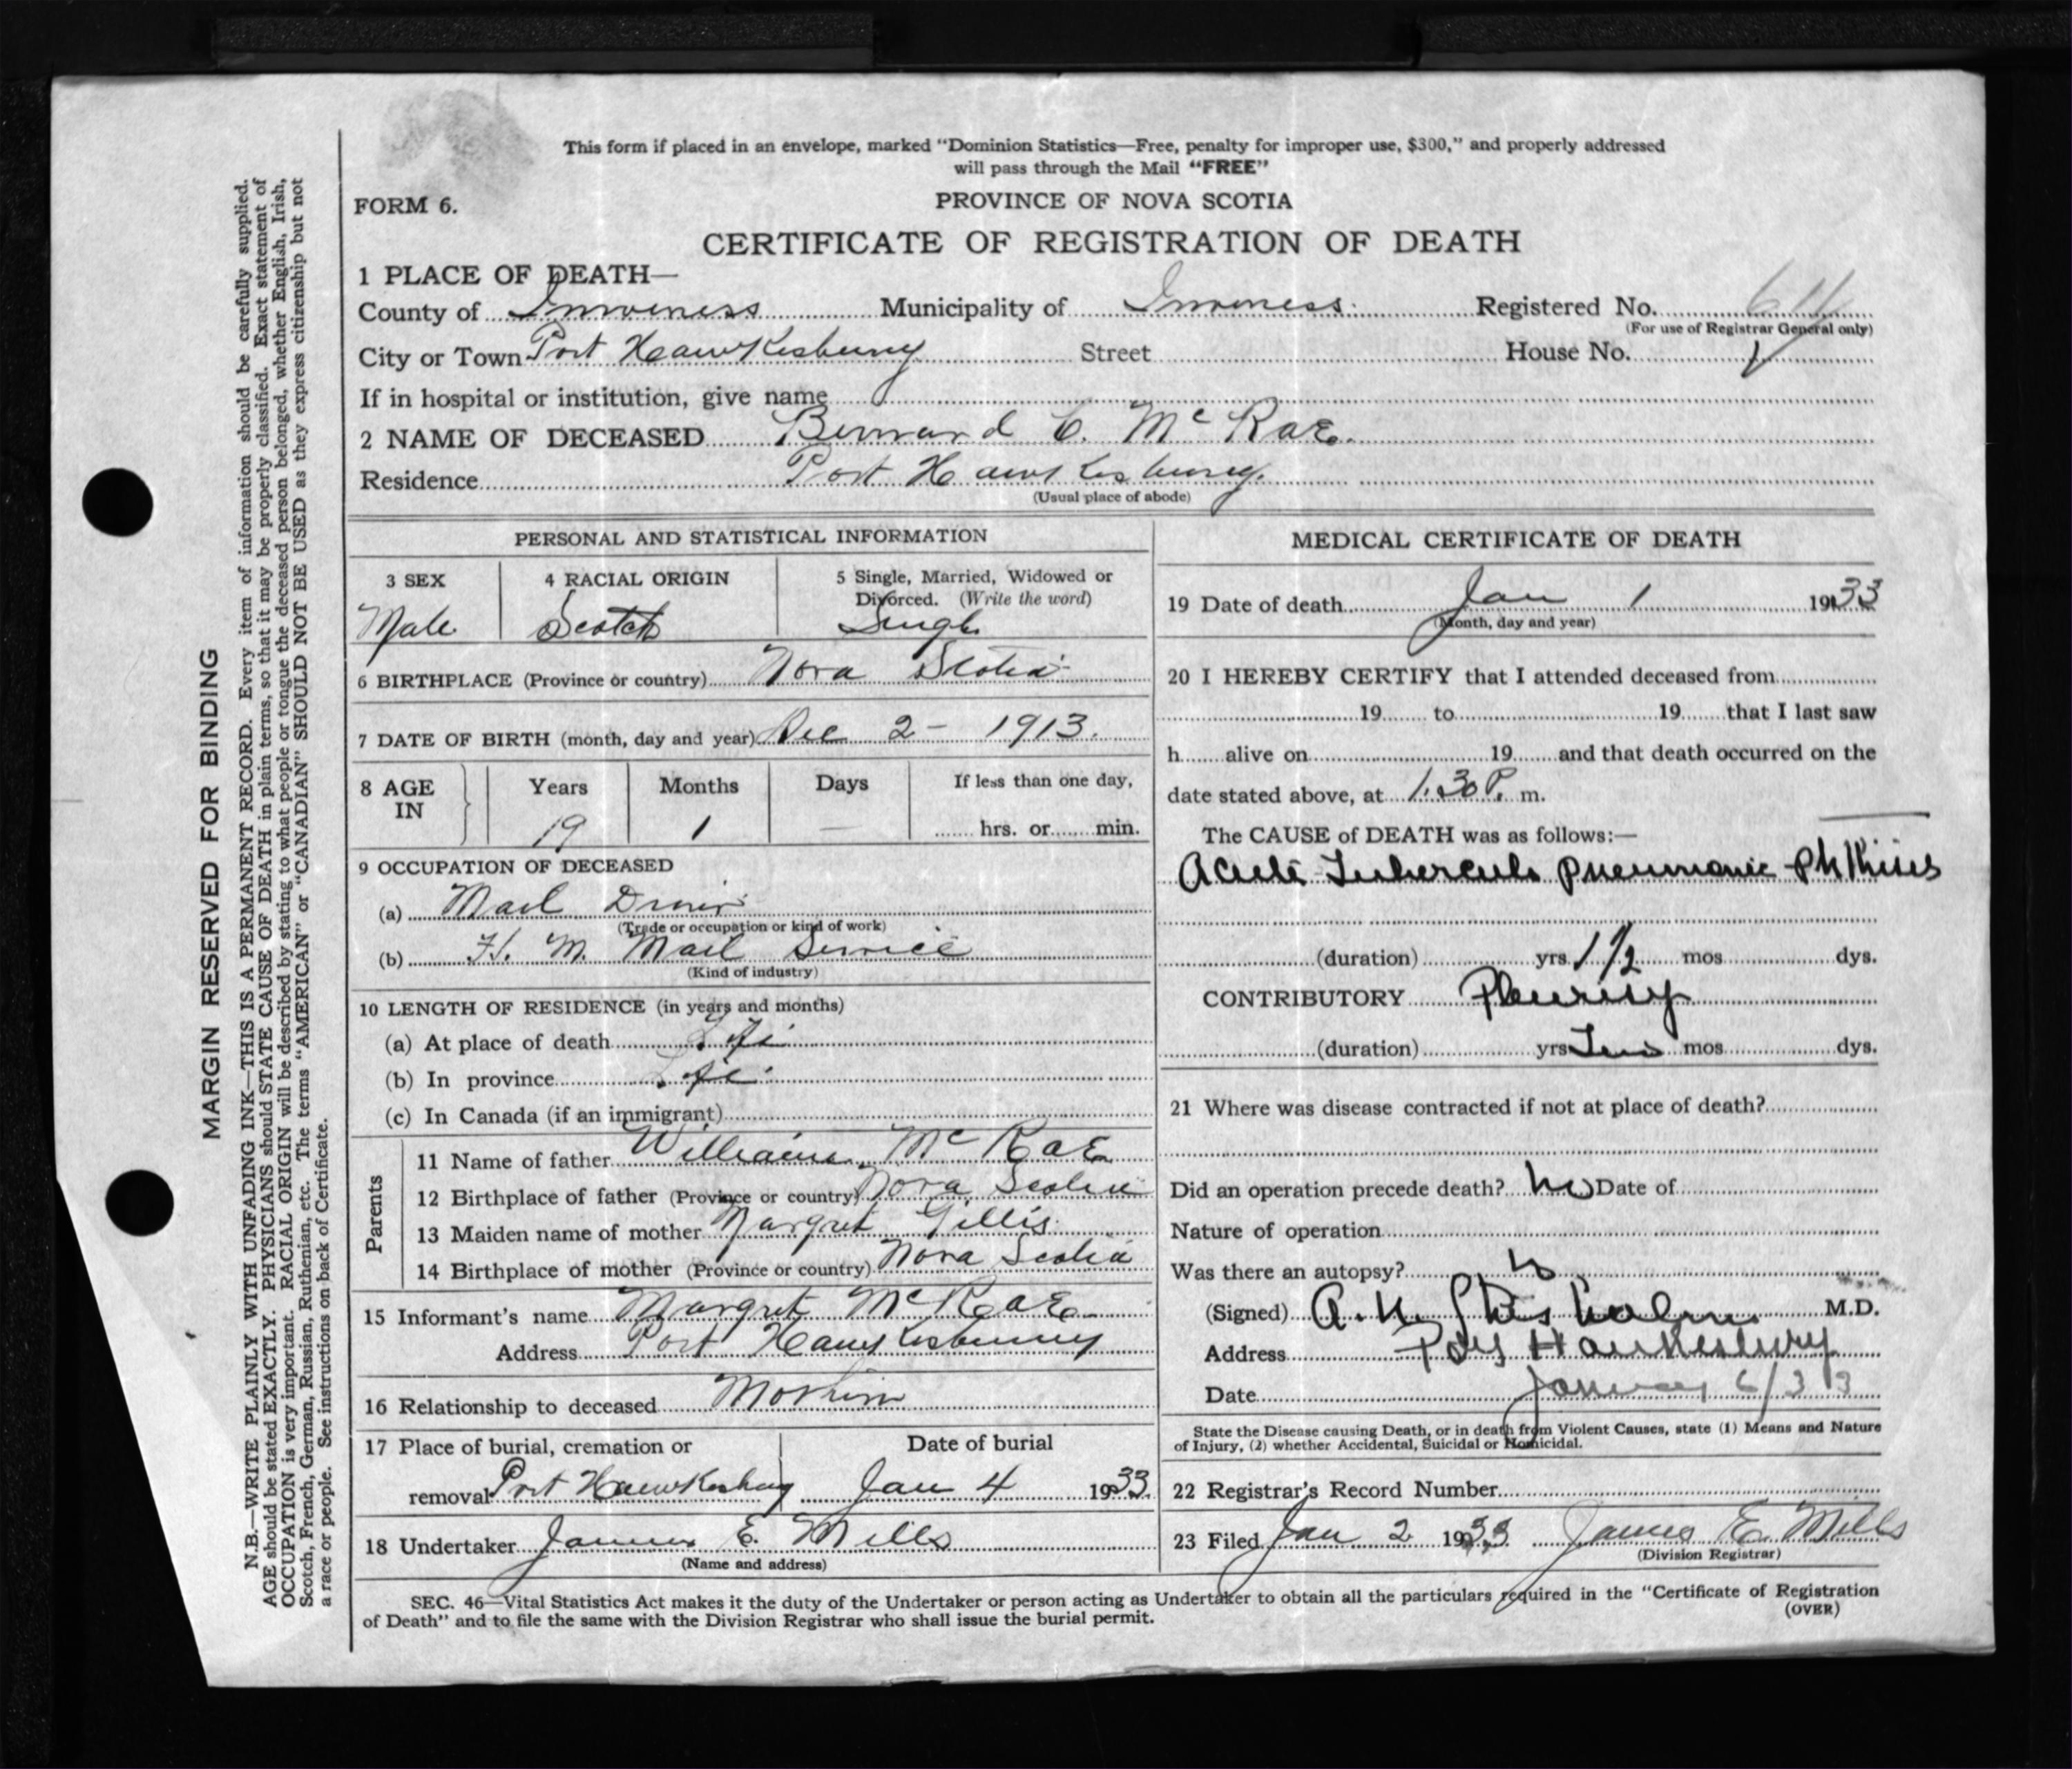 This form if placed in an envelope, marked "Dominion Statistics—Free, penalty for improper use, $300," and properly addressed
will pass through the Mail "FREE"
FORM 6.
PROVINCE OF NOVA SCOTIA
CERTIFICATE OF REGISTRATION OF DEATH
1 PLACE OF DEATH—
County of Inverness Municipality of Inverness. Registered No.
(For use of Registrar General only)
City or Town Port Hawkesbury Street House No.
If in hospital or institution, give name
2 NAME OF DECEASED Bernard C. McRae.
Residence Port Hawkesbury.
(Usual place of abode)
PERSONAL AND STATISTICAL INFORMATION
3 SEX
Male
4 RACIAL ORIGIN
Scotch
5 Single, Married, Widowed or
Divorced. (Write the word)
Single
6 BIRTHPLACE (Province or country) Nova Scotia
7 DATE OF BIRTH (month, day and year) Dec 2 – 1913.
8 AGE
IN
Years
19
Months
1
Days
—
If less than one day,
hrs. or min.
9 OCCUPATION OF DECEASED
(a) Mail Driver
(Trade or occupation or kind of work)
(b) H. M. Mail Service
(Kind of industry)
10 LENGTH OF RESIDENCE (in years and months)
(a) At place of death Life
(b) In province Life
(c) In Canada (if an immigrant)
Parents
11 Name of father William McRae
12 Birthplace of father (Province or country) Nova Scotia
13 Maiden name of mother Margret Gillis
14 Birthplace of mother (Province or country) Nova Scotia
15 Informant's name Margret McRae
Address Port Hawkesbury
16 Relationship to deceased Mother
17 Place of burial, cremation or
removal Port Hawkesbury
Date of burial
Jan 4 1933.
18 Undertaker James E. Mills
(Name and address)
MEDICAL CERTIFICATE OF DEATH
19 Date of death Jan 1 1933
(Month, day and year)
20 I HEREBY CERTIFY that I attended deceased from
19 to 19 that I last saw
h alive on 19 and that death occurred on the
date stated above, at 1.30 P. m.
The CAUSE of DEATH was as follows:—
Acute Pneumonic Phthisis
(duration) yrs 1 1/2 mos dys.
CONTRIBUTORY Pleurisy
(duration) yrs Two mos dys.
21 Where was disease contracted if not at place of death?
Did an operation precede death? No Date of
Nature of operation
Was there an autopsy? No
(Signed) Chisholm M.D.
Address Port Hawkesbury
Date January 6/33
State the Disease causing Death, or in death from Violent Causes, state (1) Means and Nature
of Injury, (2) whether Accidental, Suicidal or Homicidal.
22 Registrar's Record Number
23 Filed Jan 2 1933. James E. Mills
(Division Registrar)
SEC. 46—Vital Statistics Act makes it the duty of the Undertaker or person acting as Undertaker to obtain all the particulars required in the "Certificate of Registration
of Death" and to file the same with the Division Registrar who shall issue the burial permit.
(OVER)
MARGIN RESERVED FOR BINDING
N.B.—WRITE PLAINLY WITH UNFADING INK—THIS IS A PERMANENT RECORD. Every item of information should be carefully supplied.
AGE should be stated EXACTLY. PHYSICIANS should STATE CAUSE OF DEATH in plain terms, so that it may be properly classified. Exact statement of
OCCUPATION is very important. RACIAL ORIGIN will be described by stating to what people or tongue the deceased person belonged, whether English, Irish,
Scotch, French, German, Russian, Ruthenian, etc. The terms "AMERICAN" or "CANADIAN" SHOULD NOT BE USED as they express citizenship but not
a race or people. See instructions on back of Certificate.